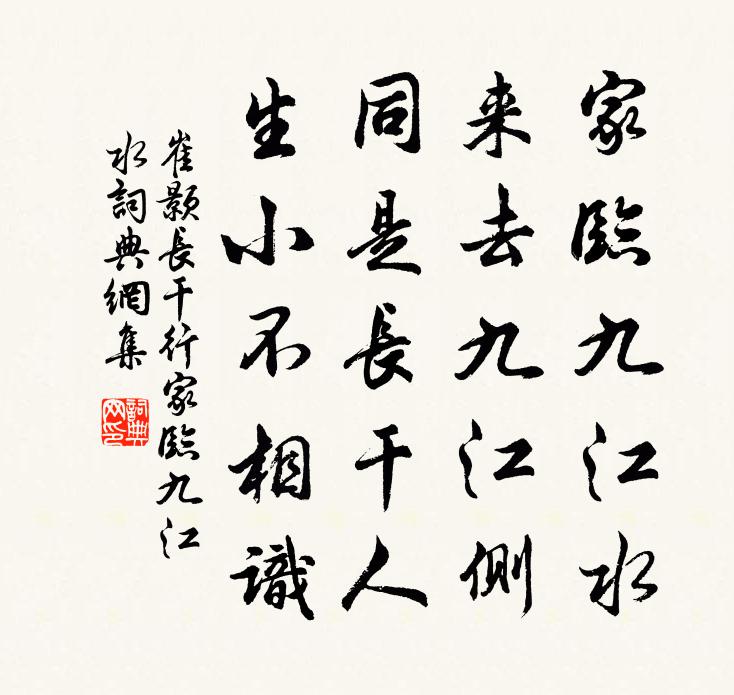 家臨九江水
来去九江側
同是長干人
生小不相識
崔颢長干行家臨九江
水詞典網集
詞典
网印